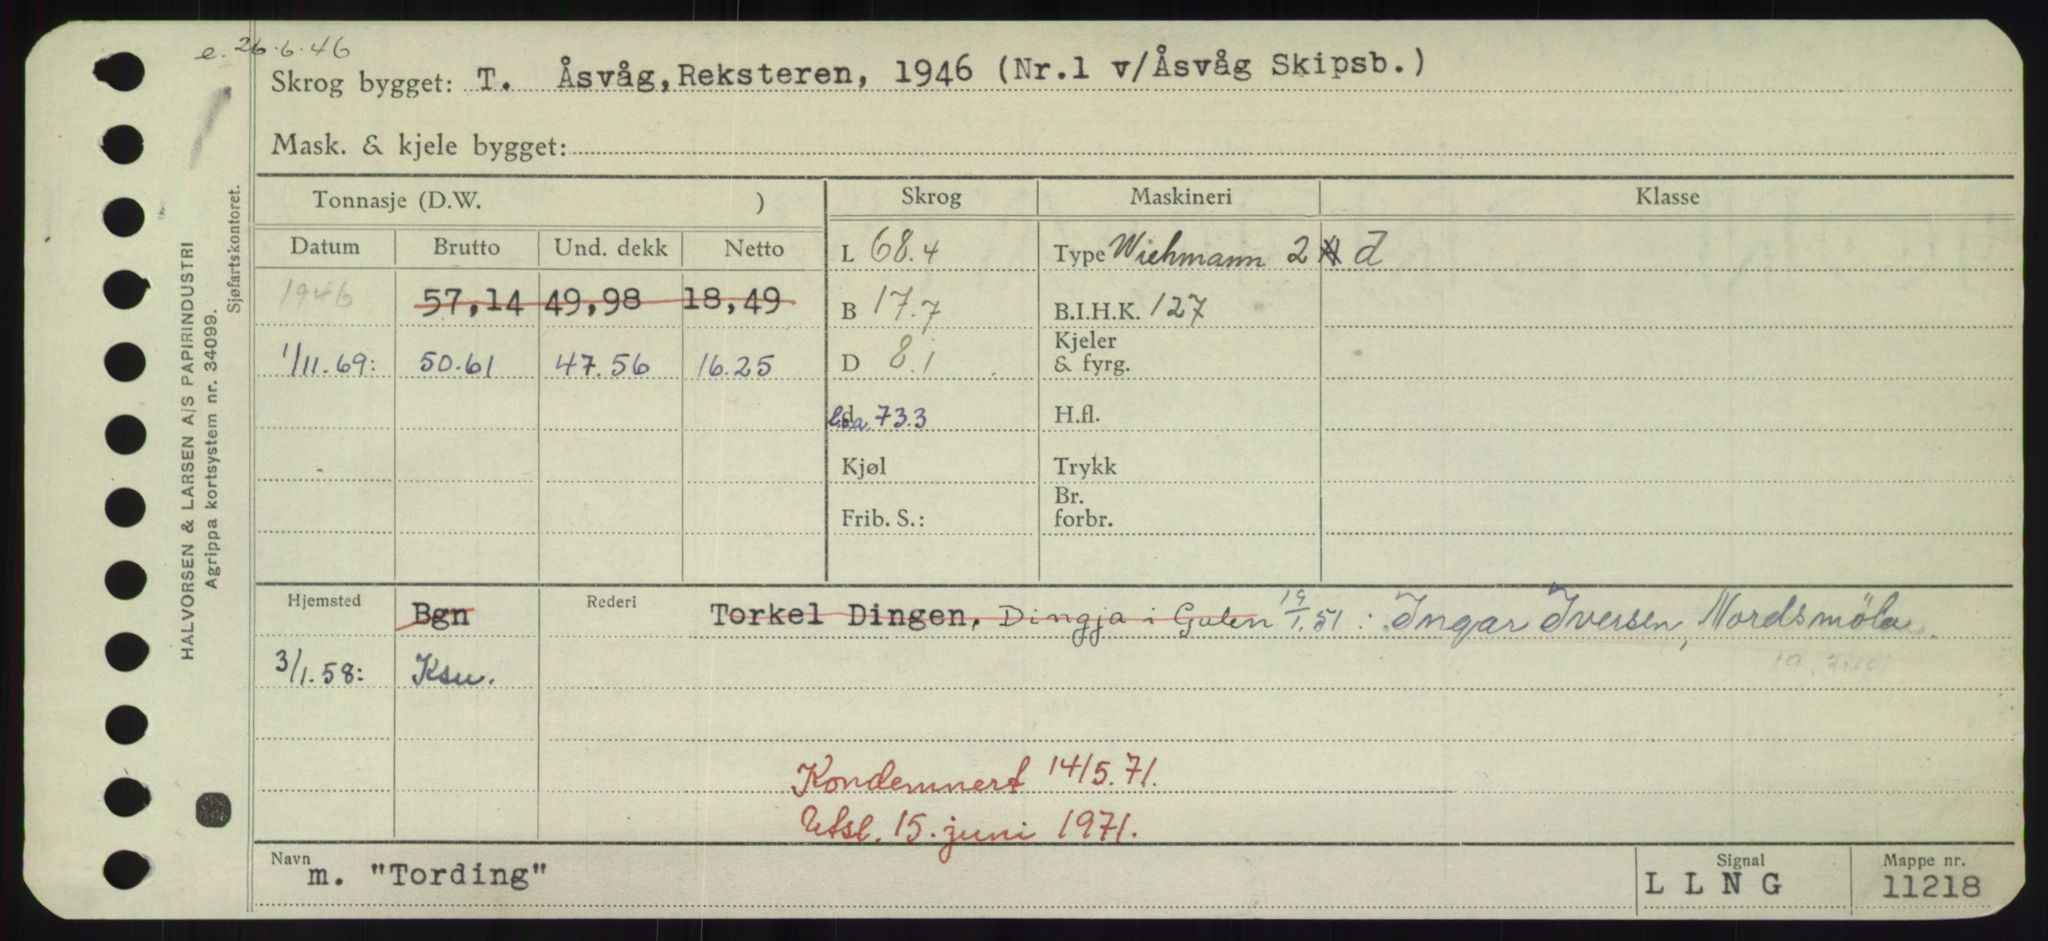 e. 26.6.46
Skrog bygget: T. Åsvåg, Reksteren, 1946 (Nr.1 v/Åsvåg Skipsb.)
Mask. & kjele bygget:
Tonnasje (D.W. ) Skrog Maskineri Klasse
Datum Brutto Und. dekk Netto L 68.4 Type Wichmann 2 d
1946 57,14 49,98 18,49 B 17.7 B.I.H.K. 127
1/11.69: 50.61 47.56 16.25 D 8.1 Kjeler & fyrg.
l.o.a. 73.3 H.fl.
Kjøl Trykk
Frib. S.: Br. forbr.
Hjemsted Bgn Rederi Torkel Dingen, Dingja i Gulen 19/1.51: Ingar Iversen, Nordsmöla
3/1.58: Ksu.
Kondemnert 14/5.71.
Utsl. 15. juni 1971.
Navn m. "Tording" Signal L L N G Mappe nr. 11218
HALVORSEN & LARSEN A/S PAPIRINDUSTRI
Agrippa kortsystem nr. 34099.
Sjøfartskontoret.